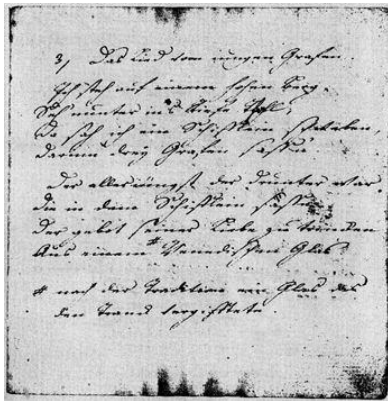 3, Das Lied vom iungen Grafen.
Ich steh auf einem hohen Berg
Seh nunter in's tiefe Thal,
Da sah ich ein Schifflein schweben,
darinn drey Grafen sassen
Der alleriüngst der drunter war
die in dem Schifflein sassen
Der gebot seiner Liebe zu trincken
Aus einem # Venedischen Glas
# nach der Tradition ein Glas das
den Tranck vergifftete